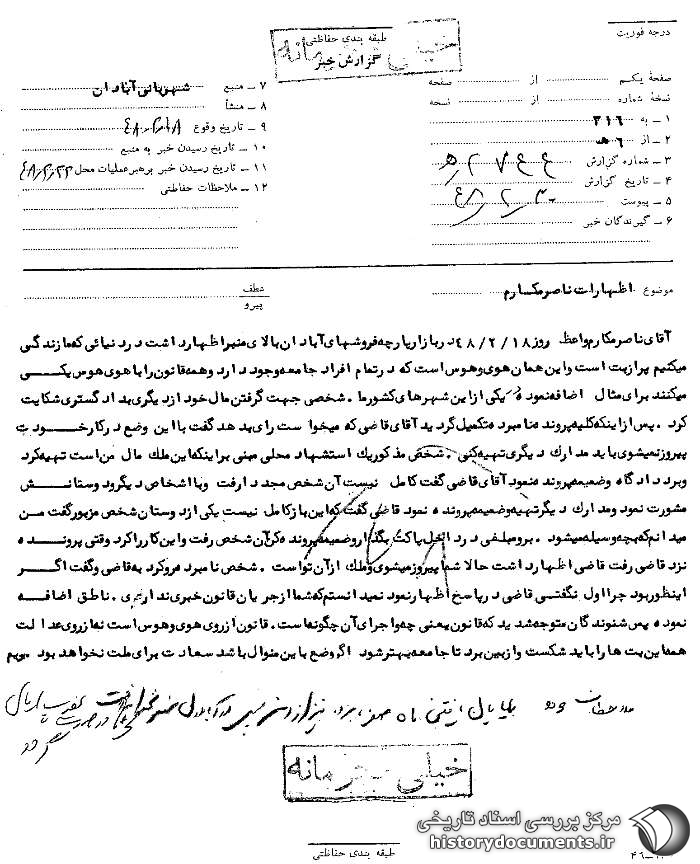 درجه فوریت
طبقه بندی حفاظتی
خیلی محرمانه
گزارش خبر
صفحهٔ یکم از صفحه
نسخهٔ شماره از نسخه
۱ – به ۳۱۶
۲ – از ۶ﻫ
۳ – شماره گزارش
۴ – تاریخ گزارش ۴۸/۲/۳۰
۵ – پیوست
۶ – گیرندگان خبر
۷ – منبع شهربانی آبادان
۸ – منشأ
۹ – تاریخ وقوع ۴۸/۲/۱۸
۱۰ – تاریخ رسیدن خبر به منبع
۱۱ – تاریخ رسیدن خبر برهبر عملیات محل ۴۸/۲/۲۲
۱۲ – ملاحظات حفاظتی
موضوع اظهارات ناصر مکارم
عطف
پیرو
آقای ناصر مکارم واعظ روز ۴۸/۲/۱۸ در بازار پارچه فروشهای آبادان بالای منبر اظهار داشت در دنیائی که ما زندگی
میکنیم پر از بت است و این همان هوی و هوس است که در تمام افراد جامعه وجود دارد و همه قانون را با هوی هوس یکی
میکنند برای مثال اضافه نمود در یکی از این شهرهای کشور ما . شخصی جهت گرفتن مال خود از دیگری بدادگستری شکایت
کرد . پس از اینکه کلیه پرونده نامبرده تکمیل گردید آقای قاضی که میخواست رای بدهد گفت با این وضع در کار خودت
پیروز نمیشوی باید مدارک دیگری تهیه کنی . شخص مذکور یک استشهاد محلی مبنی بر اینکه این ملک مال من است تهیه کرد
و برد دادگاه و ضمیمه پرونده نمود آقای قاضی گفت کامل نیست آن شخص مجدد ا رفت و با اشخاص دیگر و دوستانش
مشورت نمود و مدارک دیگر تهیه و ضمیمه پرونده نمود قاضی گفت که این باز کامل نیست یکی از دوستان شخص مزبور گفت من
میدانم که بچه وسیله میشود . برو مبلغی در داخل پاکت بگذار و ضمیمه پرونده کن آن شخص رفت و این کار را کرد وقتی پرونده
نزد قاضی رفت قاضی اظهار داشت حالا شما پیروز میشوی و ملک از آن تو است . شخص نامبرده رو کرد به قاضی و گفت اگر
اینطور بود چرا اول نگفتی قاضی در پاسخ اظهار نمود نمیدانستم که شما از جریان قانون خبری نداری . ناطق اضافه
نمود پس شنوندگان متوجه شدید که قانون یعنی چه و اجرای آن چگونه است . قانون از روی هوی و هوس است نه از روی عدالت
همه این بت ها را باید شکست و از بین برد تا جامعه بهتر شود اگر وضع باین منوال باشد سعادت برای ملت نخواهد بود .
ملاحظات
خیلی محرمانه
طبقه بندی حفاظتی
مرکز بررسی اسناد تاریخی
historydocuments.ir